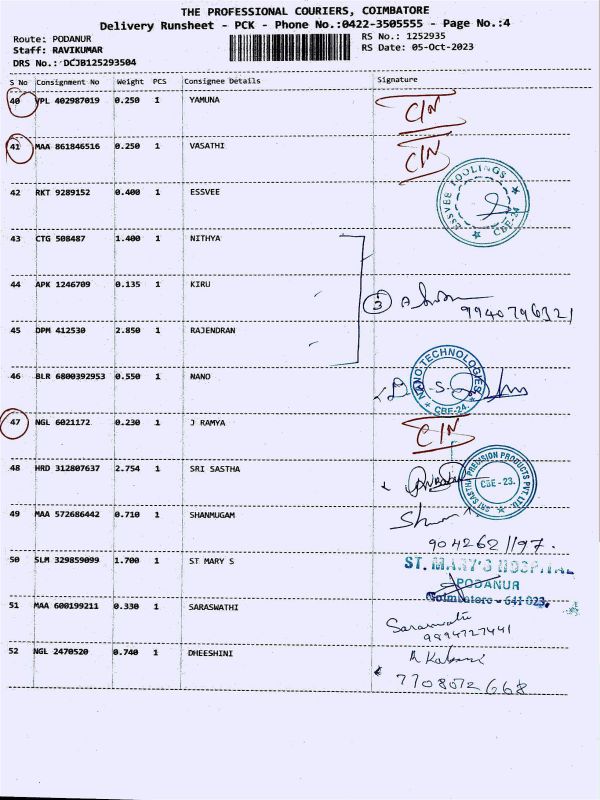 THE PROFESSIONAL COURIERS, COIMBATORE
Delivery Runsheet - PCK - Phone No.:0422-3505555 - Page No.:4
Route: PODANUR RS No.: 1252935
Staff: RAVIKUMAR RS Date: 05-Oct-2023
DRS No.: DCJB125293504
S No Consignment No Weight PCS Consignee Details Signature
40 VPL 402987019 0.250 1 YAMUNA C/N
41 MAA 861846516 0.250 1 VASATHI C/N
ESSVEE TOOLINGS CBE-24
42 RKT 9289152 0.400 1 ESSVEE
43 CTG 508487 1.400 1 NITHYA
44 APK 1246709 0.135 1 KIRU 3
9940796321
45 DPM 412530 2.850 1 RAJENDRAN
46 BLR 6800392953 0.550 1 NANO NANO TECHNOLOGIES CBE-24.
47 NGL 6021172 0.230 1 J RAMYA C/N
48 HRD 312807637 2.754 1 SRI SASTHA SRI SASTHA PRECISION PRODUCTS PVT. LTD. CBE-23.
49 MAA 572686442 0.710 1 SHANMUGAM
9042621197.
50 SLM 329859099 1.700 1 ST MARY S ST. MARY'S HOSPITAL
PODANUR
Coimbatore - 641 023.
51 MAA 600199211 0.330 1 SARASWATHI Saraswathi
9894727441
52 NGL 2470520 0.740 1 DHEESHINI
7708072668